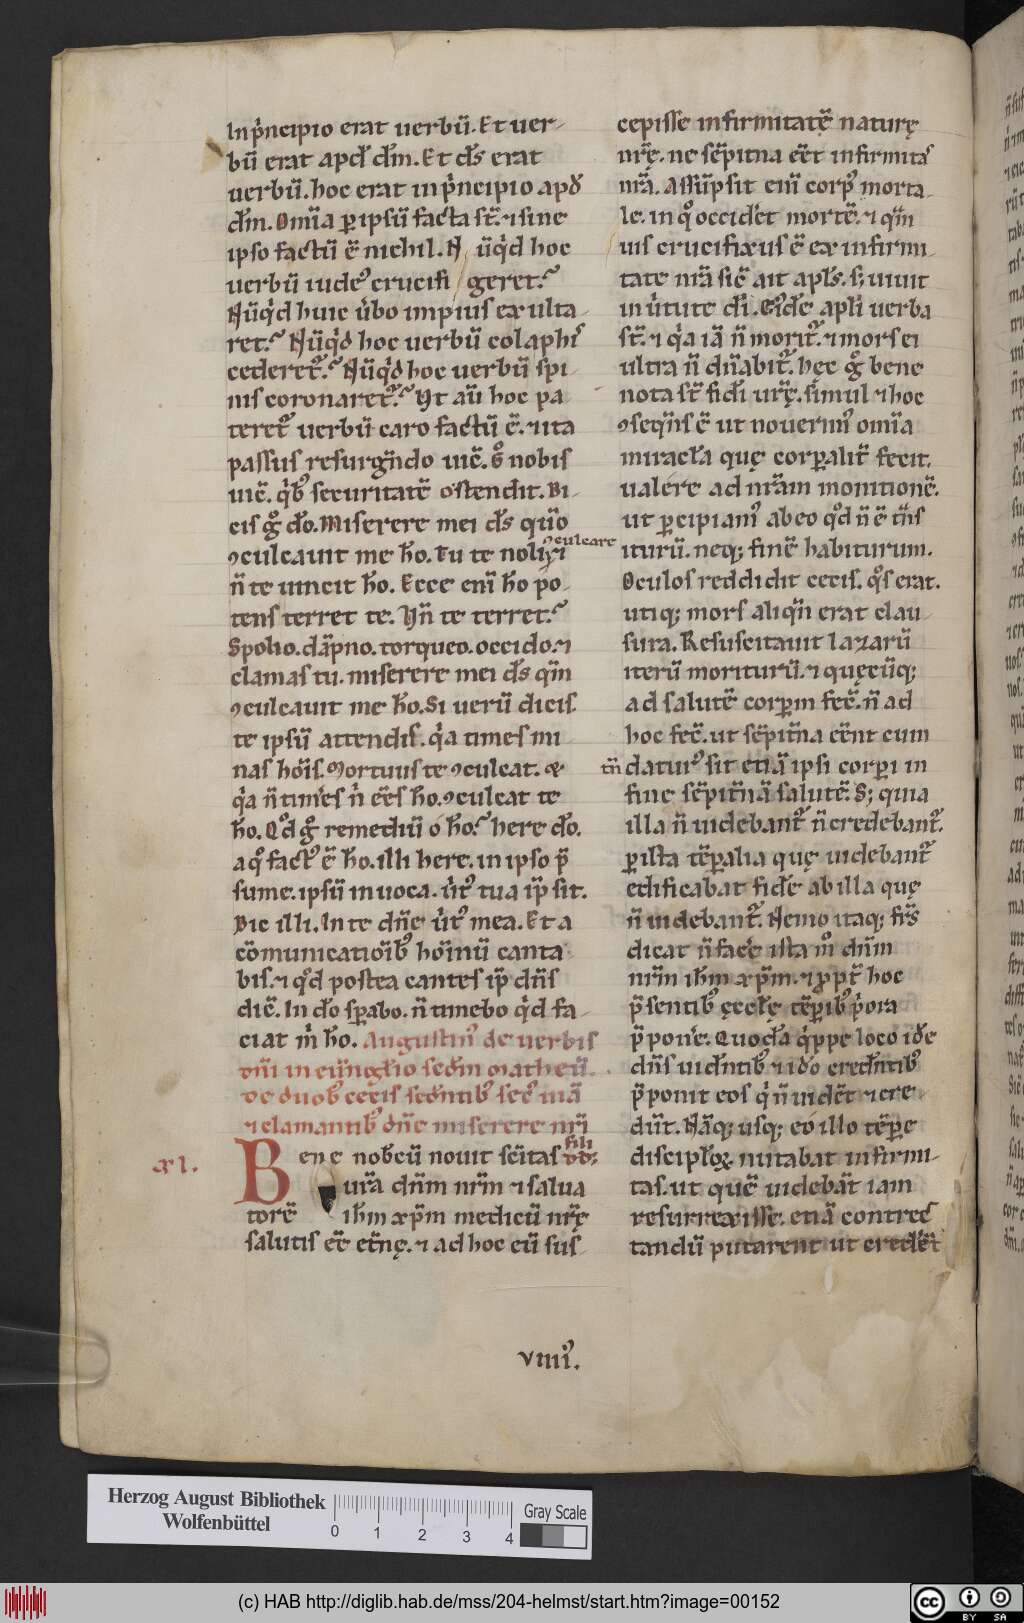 In pͥncipio erat uerbū. Et uer-
bū erat apđ dm̄. Et ds̄ erat
uerbū. hoc erat in pͥncipio apđ
dm̄. Omīa ꝑ ipsū facta st̄. ⁊ sine
ipso factū ē nichil. Nūqͥd hoc
uerbū iudeꝰ crucifigeret?
Nūqͥd huic uͥbo impius exulta-
ret? Nūqͥd hoc uerbū colaphiſ
cederet᷑? Nūqͥd hoc uerbū spi-
nis coronaret᷑? Ut aū hoc pa-
teret᷑ uerbū caro factū ē. ⁊ ita
passus resurgn̄do uic̄. G̊ nobis
uic̄. qͥbꝰ securitatē ostendit. Di-
cis g̊ do. Miserere mei ds̄ qm̄o
ꝯculcauit me ħo. Tu te noli ꝯculcare
n̄ te uincit ħo. Ecce eni ħo po-
tens terret te. Un̄ te terret?
Spolio. dāpno. torqueo. occido. ⁊
clamas tu. miserere mei ds̄ qm̄
ꝯculcauit me ħo. Si uerū dicis
te ipsū attendis. qͥa times mi-
nas hoīs. Mortuus te ꝯculcat. &
qͥa n̄ times n̄ ees ħo. ꝯculcat te
ħo. Qđ g̊ remediū o ħo? here do.
a qͦ factꝰ ē ħo. illi here. in ipso p̄
sume. ipsū inuoca. uͥtꝰ tua ip̄ sit.
Dic illi. In te dn̄e uͥtꝰ mea. Et a
cōmunicatioībꝰ hoīnū canta-
bis. ⁊ qđ postea cantes ip̄ dn̄s
dic̄. In do sꝑabo. n̄ timebo qͥd fa-
ciat m̄ ħo. Augustinꝰ de uerbis
dn̄i in euͣngelio secdm̄ matheū.
de duobꝰ cecis sedntibꝰ secꝰ uiā
⁊ clamantibꝰ dn̄e miserere nr̄i
xl.
Bene nobcū nouit sc̄itas fili dd;
ur̄a dn̄m nr̄m ⁊ salua
torē ih̄m xp̄m medicū nr̄ę
salutis eē etn̄ę. ⁊ ad hoc eū sus-
cepisse infirmitatē naturę
nr̄ę. ne sēpitna eēt infirmitas
nr̄a. Assūpsit eni corpꝰ morta-
le. in qͦ occidet mortē. ⁊ qm̄
uis crucifixus ē ex infirmi-
tate nr̄a sic̄ ait apls̄. s; uiuit
in uͥtute di. Eiꝰde apli uerba
st̄. ⁊ qͥa iā n̄ morit᷑. ⁊ mors ei
ultra n̄ dn̄abit᷑. hęc g̊ bene
nota st̄ fidi ur̄ę. simul ⁊ hoc
ꝯseqn̄s ē ut nouerimꝰ omīa
miracła quę corꝑalit̄ fecit.
ualere ad nr̄am monitionē.
ut ꝑcipiamꝰ ab eo qđ n̄ ē tn̄s
iturū. neqꝫ finē habiturum.
Oculos reddidit cecis. qͦs erat.
utiqꝫ mors aliqn̄ erat clau-
sura. Resuscitauit lazarū
iterū moriturū. ⁊ quęcūqꝫ
ad salutē corꝑum fec̄. n̄ ad
hoc fec̄. ut sēpitn̄a eēnt cum
tn̄ daturꝰ sit etiā ipsi corꝑi in
fine sēpitn̄ā salutē. S; quia
illa n̄ uidebant᷑ n̄ credebant᷑.
ꝑ ista tēꝑalia quę uidebant᷑
edificabat fide ab illa quę
n̄ uidebant᷑. Nemo itaqꝫ frs̄
dicat n̄ face ista mͦ dn̄m
nr̄m ih̄m xp̄m. ⁊ ꝓpt̄ hoc
p̄sentibꝰ ęcclę tēꝑibꝰ pͥora
p̄pone. Quoda qͥppe loco ide
dn̄s uidntibꝰ ⁊ ido credntibꝰ
p̄ponit eos qͥ n̄ uidēt ⁊ cre-
dūt. Nāqꝫ usqꝫ eo illo tēꝑe
discipłoꝝ nutabat infirmi-
tas. ut quē uidebāt iam
resurrexisse. etiā contrec-
tandū putarent ut crederēt
viiiiꝰ.
Herzog August Bibliothek
Wolfenbüttel
0 1 2 3 4
Gray Scale
(c) HAB http://diglib.hab.de/mss/204-helmst/start.htm?image=00152
cc BY SA